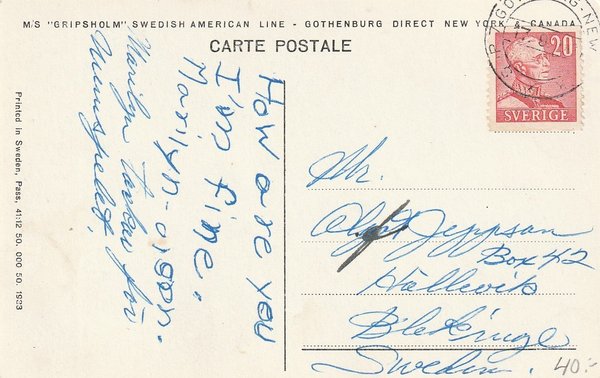 M/S "GRIPSHOLM" SWEDISH AMERICAN LINE - GOTHENBURG DIRECT NEW YORK & CANADA
CARTE POSTALE
20
SVERIGE
How are you
I'm fine.
Marilyn
Marilyn Tackar för
Printed in Sweden, Pass, 41:12 50. 000 50. 1923
Mr.
Jeppson
Box 42
Hällevik
Blekinge
Sweden.
40:-